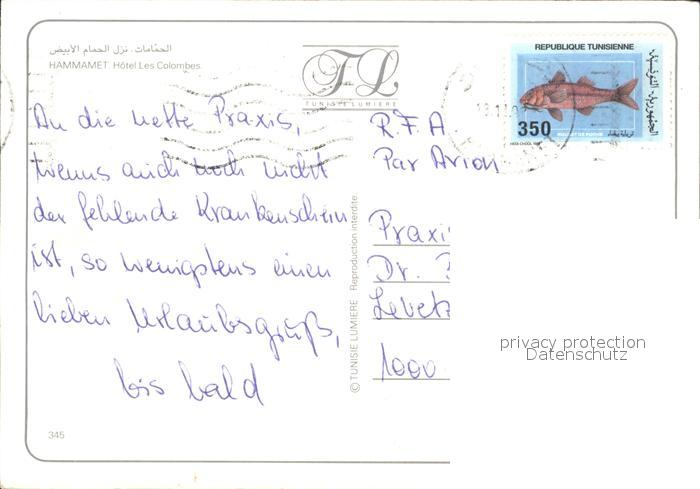 الحمّامات. نزل الحمام الأبيض
HAMMAMET. Hôtel Les Colombes.
TL
TUNISIE LUMIERE
REPUBLIQUE TUNISIENNE
الجمهورية التونسية
350
ROUGET DE ROCHE
An die nette Praxis,
wenns auch noch nicht
der fehlende Krankenschein
ist, so wenigstens einen
lieben Urlaubsgruß,
bis bald
R.F.A.
Par Avion
Praxi
Dr.
Levetz
1000
© TUNISIE LUMIERE Reproduction interdite.
privacy protection
Datenschutz
345